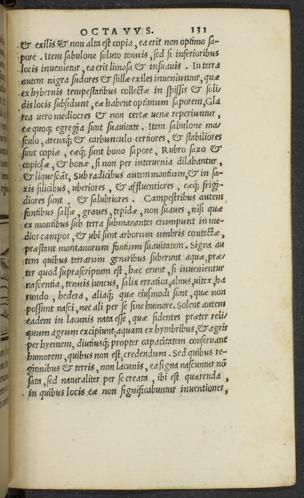 OCTAVVS. 131
& exilis & non alta est copia, ea erit non optimo sa-
pore. Item sabulone soluto tenuis, sed si inferioribus
locis inuenietur, ea erit limosa & insuauis. In terra
autem nigra sudores & stillæ exiles inueniuntur, quæ
ex hybernis tempestatibus collectæ in spissis & soli-
dis locis subsidunt, eæ habent optimum saporem, Gla
rea uero mediocres & non certæ uenæ reperiuntur,
eæ quoq; egregia sunt suauitate. Item sabulone ma/
sculo, arenaq; & carbunculo certiores, & stabiliores
sunt copiæ, eæq; sunt bono sapore. Rubro saxo &
copiosæ, & bonæ, si non per interuenia dilabantur,
& liquescāt, Sub radicibus autem montium, & in sa-
xis silicibus, uberiores, & affluentiores, eæq; frigi-
diores sunt, & salubriores. Campestribus autem
fontibus salsæ, graues, tepidæ, non suaues, nisi quæ
ex montibus sub terra submanantes erumpunt in me-
dios campos, & ubi sunt arborum umbris contectæ,
præstant montanorum fontium suauitatem. Signa au
tem quibus terrarum generibus suberunt aquæ, præ-
ter quod suprascriptum est, hæc erunt, si inuenientur
nascentia, tenuis iuncus, salix erratica, alnus, uitex, ha
rundo, hedera, aliaq; quæ eiusmodi sunt, quæ non
possunt nasci, nec ali per se sine humore. Solent autem
eadem in lacunis nata esse, quæ sidentes præter reli-
quum agrum excipiunt, aquam ex hymbribus, & agris
per hyemem, diutiusq; propter capacitatem conseruant
humorem, quibus non est, credendum. Sed quibus re-
gionibus & terris, non lacunis, ea signa nascuntur nō
sata, sed naturaliter per se creata, ibi est quærenda,
in quibus locis eæ non significabuntur inuentiones,